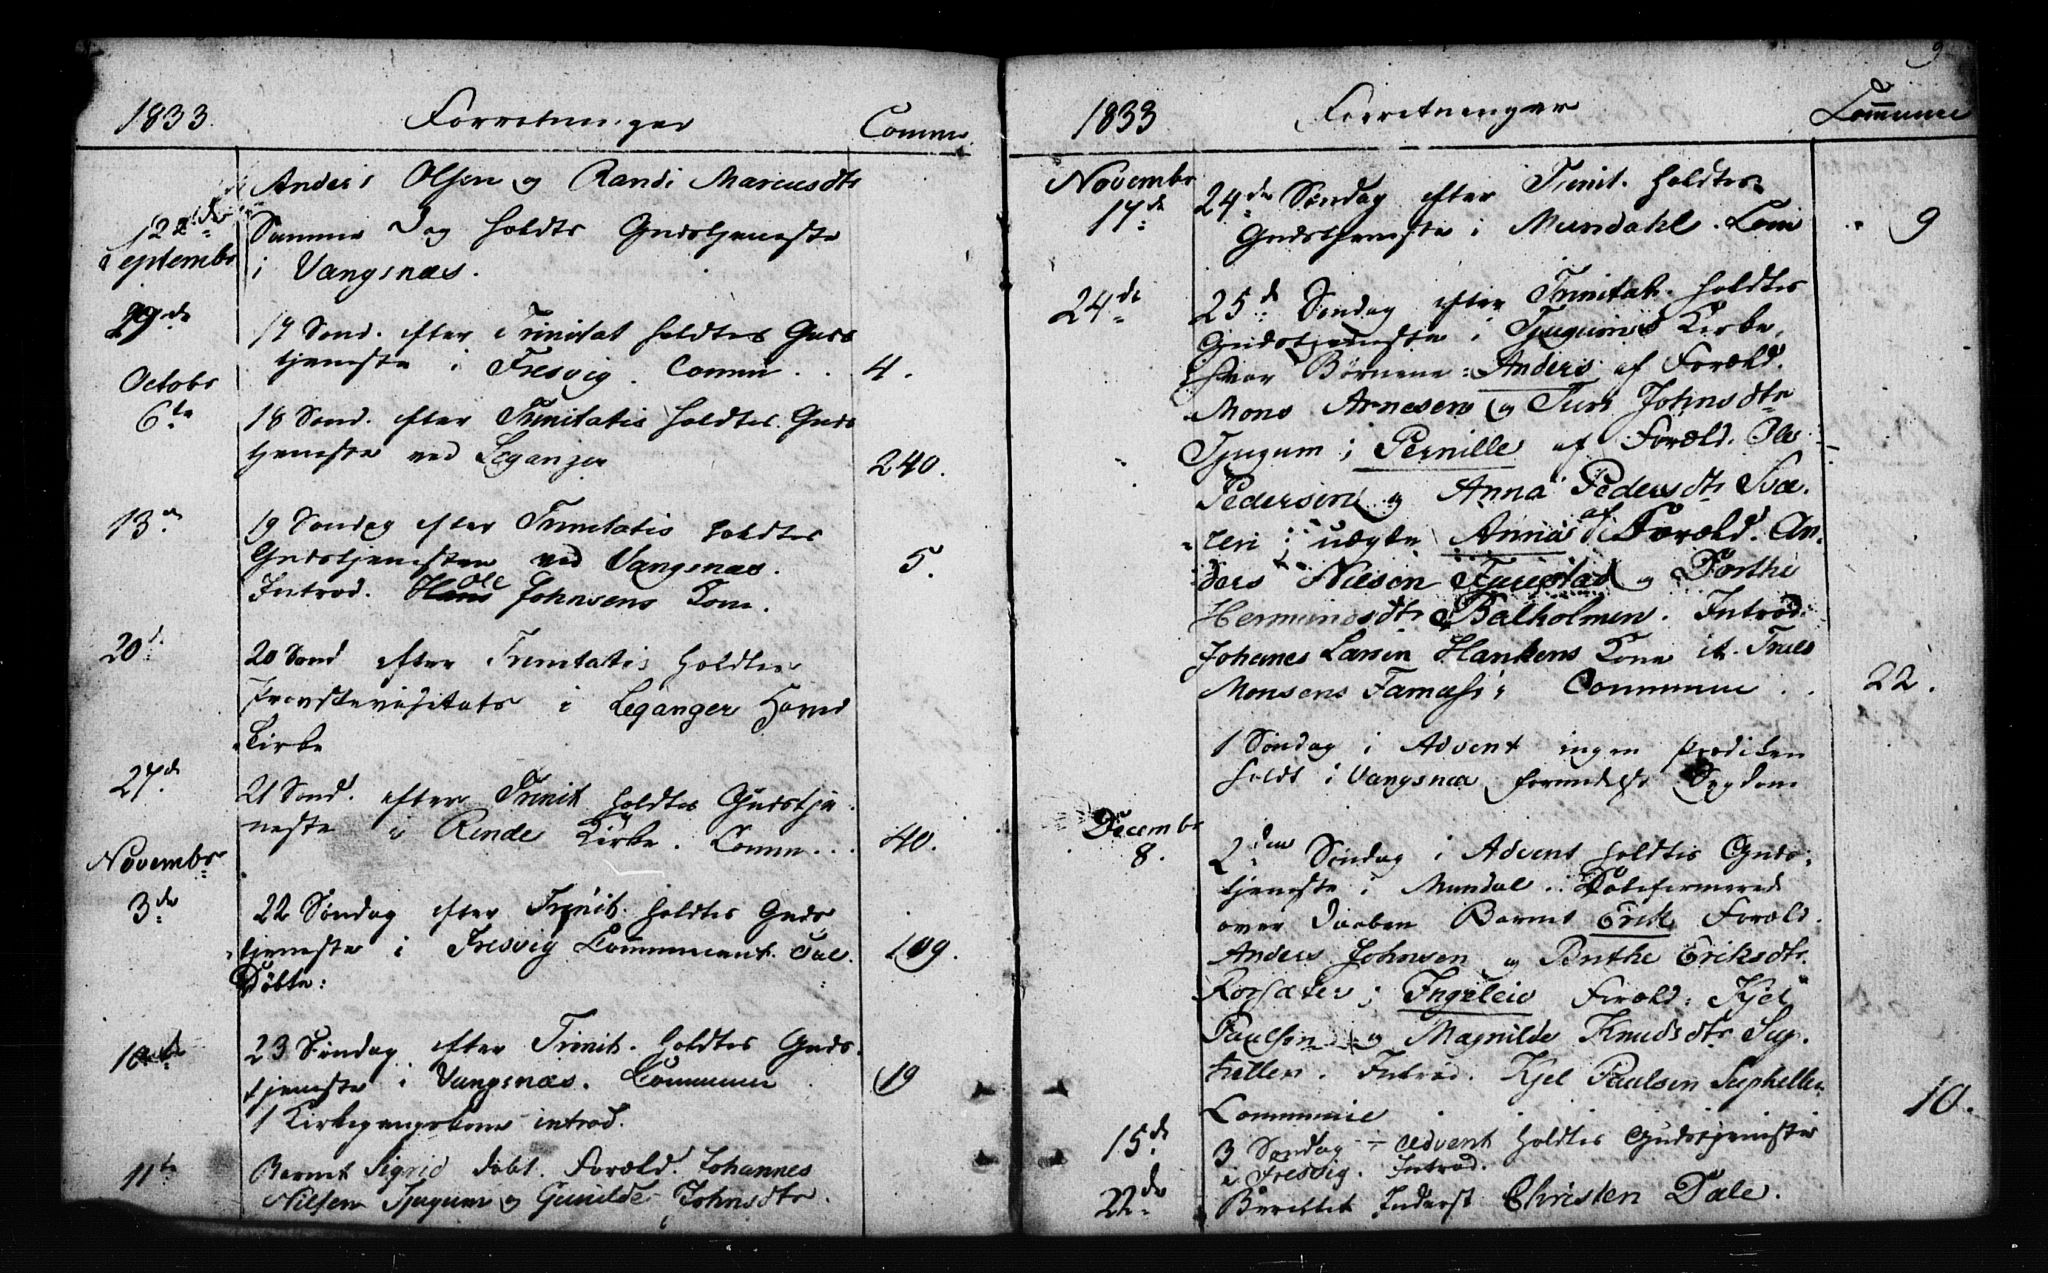 1833. Forretninger Commu.
Anders Olsen og Randi Marcusdtr
Samme Dag holdts Gudstjeneste
22de Septembr i Vangsnæs.
29de 17 Sønd. efter Trinitat holdtes Guds
tjeneste i Fresvig. Comm . . 4.
Octobr 6te 18 Sønd. efter Trinitatis holdtes Guds
tjeneste ved Leganger 240.
13de 19 Søndag efter Trinitatis holdtes
Gudstjenesten ved Vangsnæs. 5.
Introd. Ole Johnsens Kone.
20de 20 Sønd efter Trinitatis holdtes
Provstevisitats i Leganger Hoved
Kirke
27de 21 Sønd. efter Trinit holdtes Gudstje
neste i Rinde Kirke. Comm . . . 40.
Novembr 3de 22 Søndag efter Trinit. holdtes Guds
tjeneste i Fresvig Communicant. Tal. 109.
Døbte:
10de 23 Søndag efter Trinit. holdtes Guds-
tjeneste i Vangsnæs. Communi 19
1 Kirkegangskone introd.
11te Barnet Sigrid døbt. Foræld. Johannes
Nilsen Tjugum og Gunilde Johnsdtr.
9
1833 Forretninger Communi
Novembr 17de 24de Søndag efter Trinit. holdtes
Gudstjeneste i Mundahl. Com 9
24de 25de Søndag efter Trinitat. holdtes
Gudstjeneste i Tjugums Kirke,
hvor Børnene: Anders af Foræld.
Mons Arnesen og Turi Johnsdtr
Tjugum; Pernille af Foræld. Ole
Pedersen og Anna Pedersdtr Svæ-
ren; uægte Anna af Foræld. An-
ders Nilsen og Dorthe
Hermundsdtr Balholmen. Introd:
Johanes Larsen Hankens Kone it. Truls
Monsens Communi . . 22.
1 Søndag i Advent ingen Prædiken
holdt i Vangsnæs formedelst Sygdom
Decembr 8. 2den Søndag i Advent holdtes Guds-
tjeneste i Mundal.
over Daaben Barnet Erik Foræld.
Anders Johnsen og Brithe Eriksdtr.
; Ingeleiv Foræld: Kjel
Paulsen og Magnilde Knudsdtr Sup-
hellen. Introd. Kjel Paulsen Suphellen
Communi 10.
15de 3 Søndag Advent holdtes Gudstjeneste
i Fresvig. Introd.
22de Berettet Inderst Christen Dale.